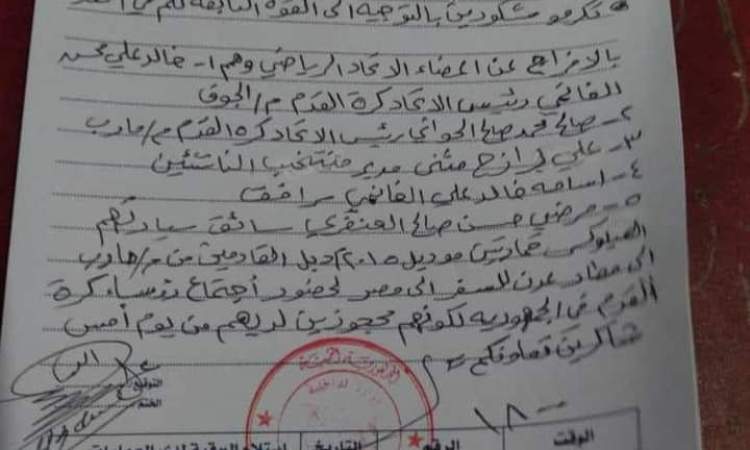 تكرمو مشكورين بالتوجيه الى القوة التابعة لكم في
بالافراج عن اعضاء الاتحاد الرياضي وهم ١- خالد علي محسن
الغانمي رئيس الاتحاد كرة القدم م/الجوف
٢- صالح محمد صالح رئيس الاتحاد كرة القدم م/مارب
٣- علي مثنى مدير منتخب الناشئين
٤- اسامه خالد علي الغانمي مرافق
٥- مرضي حسن صالح سائق سيارتهم
الهيلوكس غمارتين موديل ٢٠١٥ دبل القادمين من م/مارب
الى مطار عدن للسفر الى مصر لحضور أجتماع رؤساء كرة
القدم في الجمهوريه لكونهم محجوزين لديهم من يوم أمس
شاكرين تعاونكم
التوقيع
الختم
١٨٠٠
الوقت
التاريخ